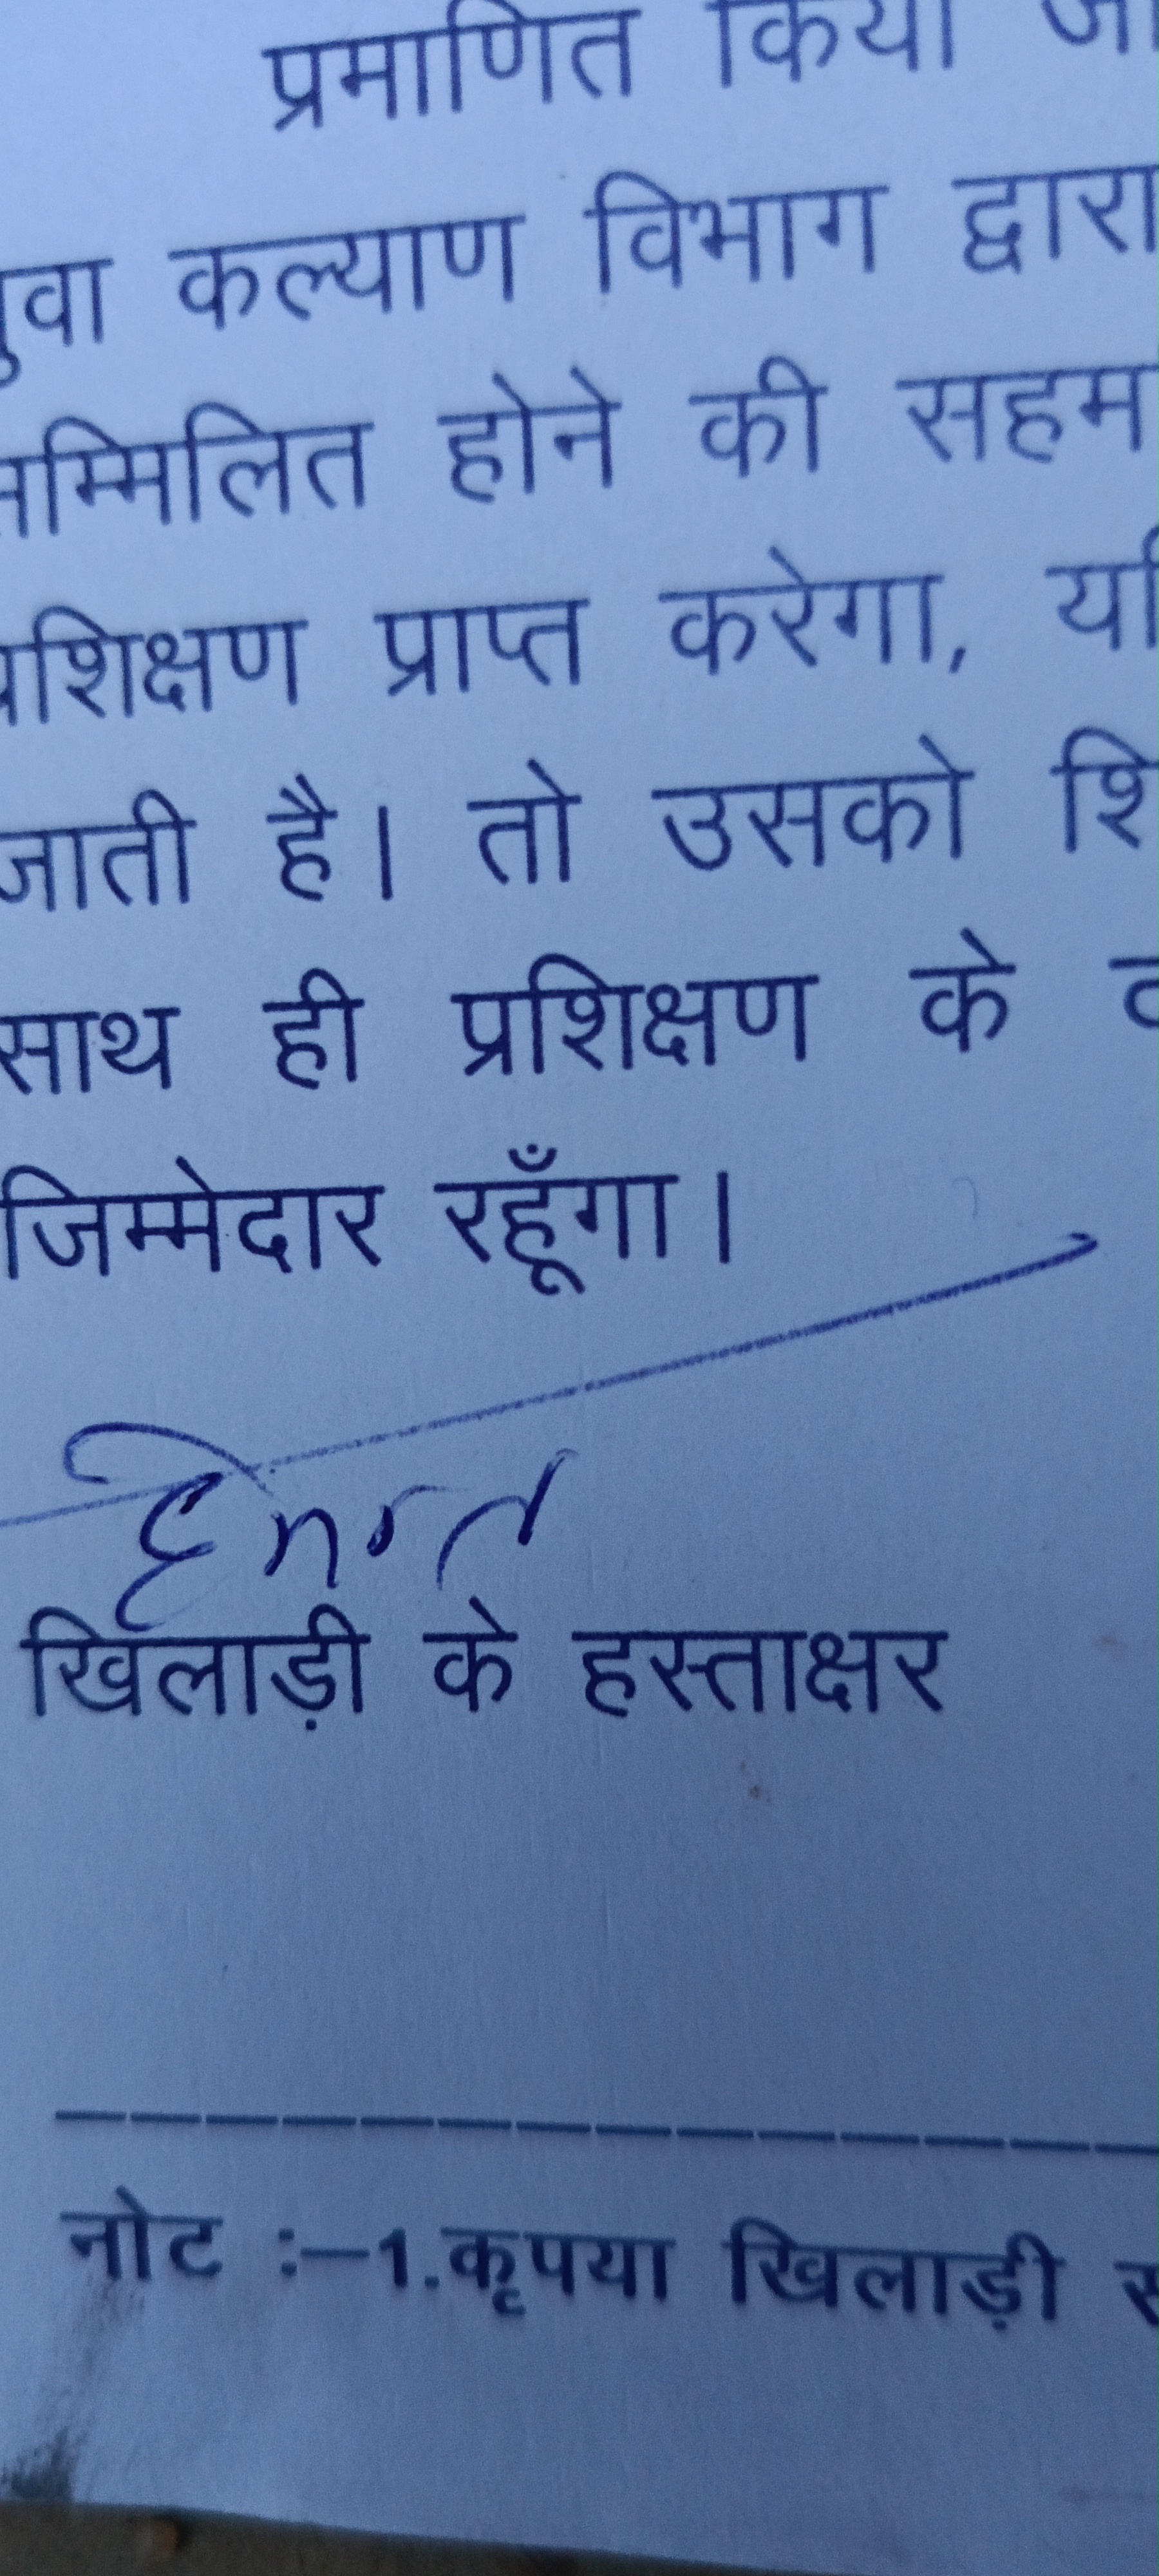 प्रमाणित किया जा
युवा कल्याण विभाग द्वारा
सम्मिलित होने की सहम
प्रशिक्षण प्राप्त करेगा, यदि
जाती है। तो उसको शि
साथ ही प्रशिक्षण के
जिम्मेदार रहूँगा।
खिलाड़ी के हस्ताक्षर
नोट :–1.कृपया खिलाड़ी